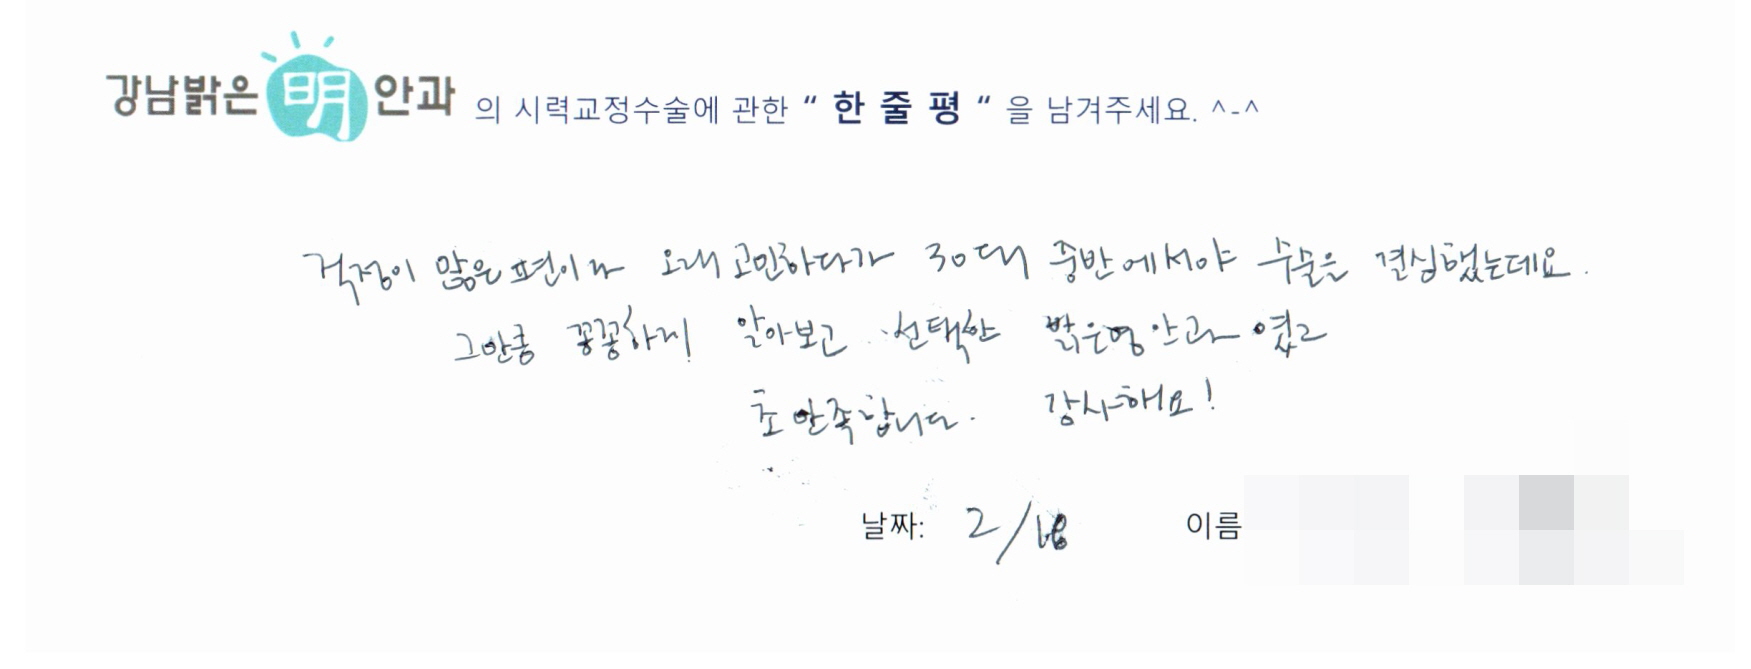 강남밝은明안과 의 시력교정수술에 관한 “ 한 줄 평 “ 을 남겨주세요. ^-^
걱정이 많은 편이라 오래 고민하다가 30대 중반에서야 수술을 결심했는데요.
그만큼 꼼꼼하게 알아보고 선택한 밝은명안과 였고
초 만족합니다. 감사해요!
날짜: 2/18 이름